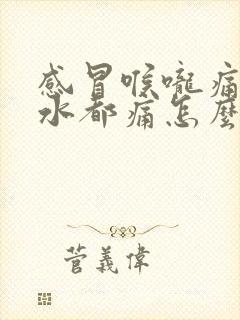 感冒喉嚨痛
水都痛怎麼
菅義偉